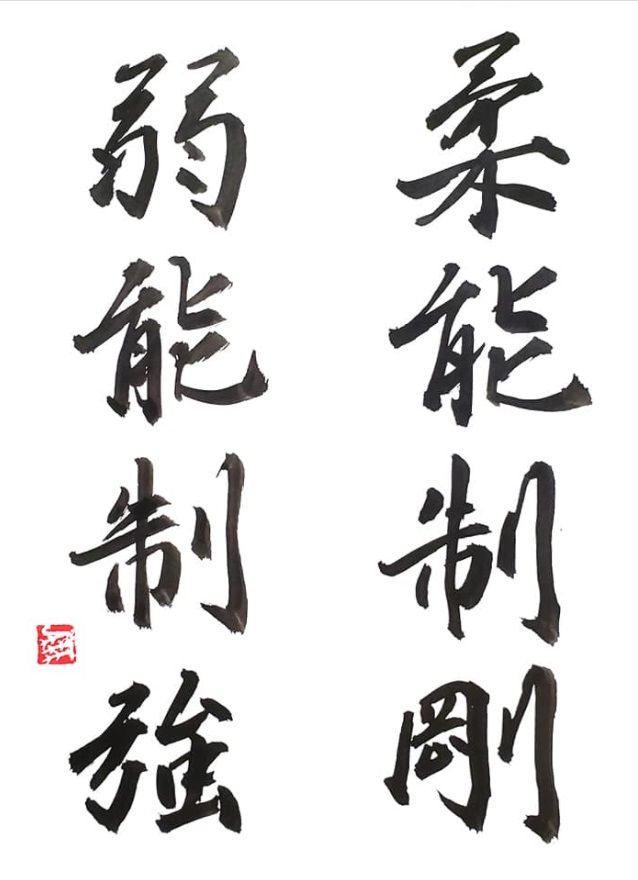 柔能制剛
弱能制強